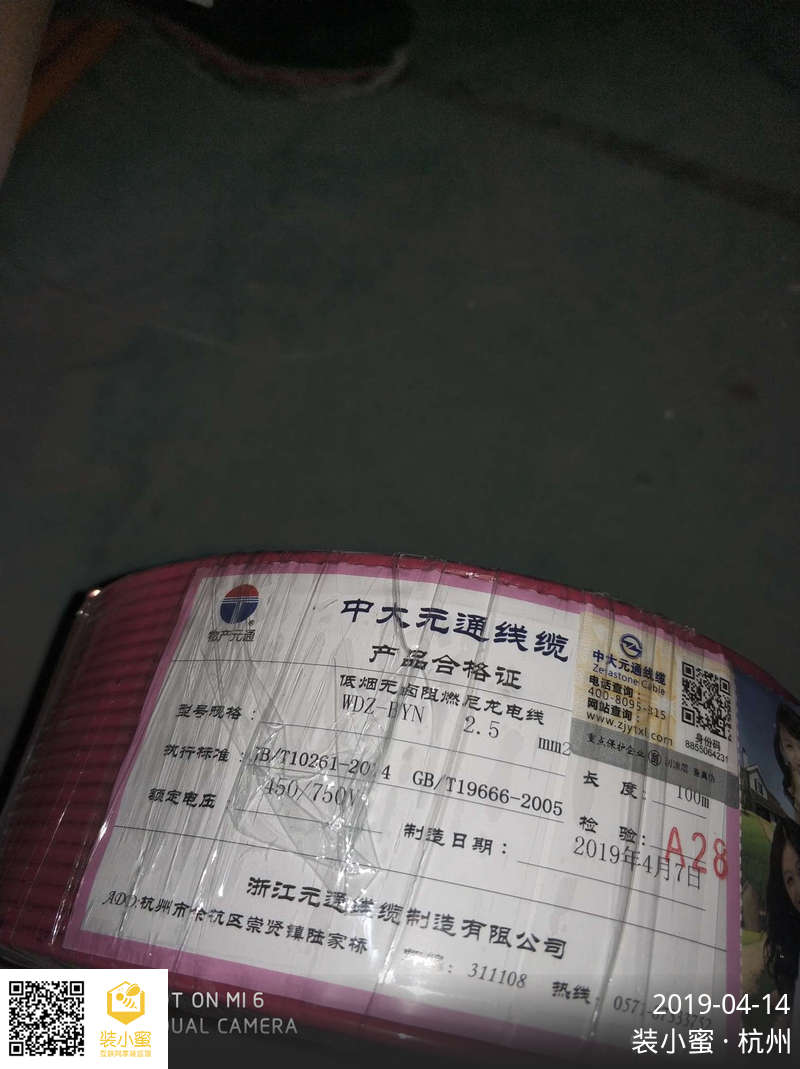 物产元通
中大元通线缆
产品合格证
低烟无卤阻燃尼龙电线
型号规格：
WDZ-BYN 2.5 mm2
执行标准：
GB/T19666-2005
额定电压：
450/750V
长 度：
100m
检 验：
A28
制造日期：
2019年4月7日
浙江元通线缆制造有限公司
ADD:杭州市余杭区崇贤镇陆家桥
311108
热线：
中大元通线缆
Zetastone Cable
电话查询：
400-8095-315
网站查询：
www.zjytxl.com
身份码
8855064231
重点保护企业
装小蜜
OT ON MI 6
DUAL CAMERA
2019-04-14
装小蜜·杭州